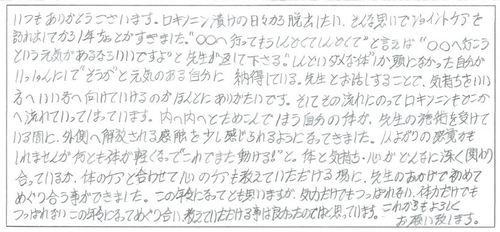 いつもありがとうございます。ロキソニン漬けの日々から脱出したい、そんな思いでジョイントケアを
訪れてから1年ちょっとがすぎました。"○○へ行ってもしんどくてしんどくて"と言えば"○○へ行こう
という元気があるならいいですよ"と先生が返して下さる。"しんどいダメな体"しか頭になかった自分が
いっしゅんにして"そうか"と元気のある自分に納得している。先生とお話しすることで、気持ちをいい
方へいい方へ向けていけるのがほんとにありがたいです。そしてその流れにのってロキソニンもどこか
へ流れていってはっています。内へ内へとためこんでしまう自分の体が、先生の施術を受けて
いる間に、外側へ解放される感触を少し感じられるようになってきました。の感覚かも
しれませんが何とも体が軽くなって"これでまた動けるぞ"と。体と気持ち・心がどんなに深く関わり
合っているか、体のケアと合わせて心のケアも教えていただける場に、先生のおかげで初めて
めぐり合う事ができました。この年になってとも思いますが、気力だけでもつっぱれない、体力だけでも
つっぱれないこの年になってめぐり合い、教えていただける事は良かったのではと思っています。これからもよろしく
お願い致します。